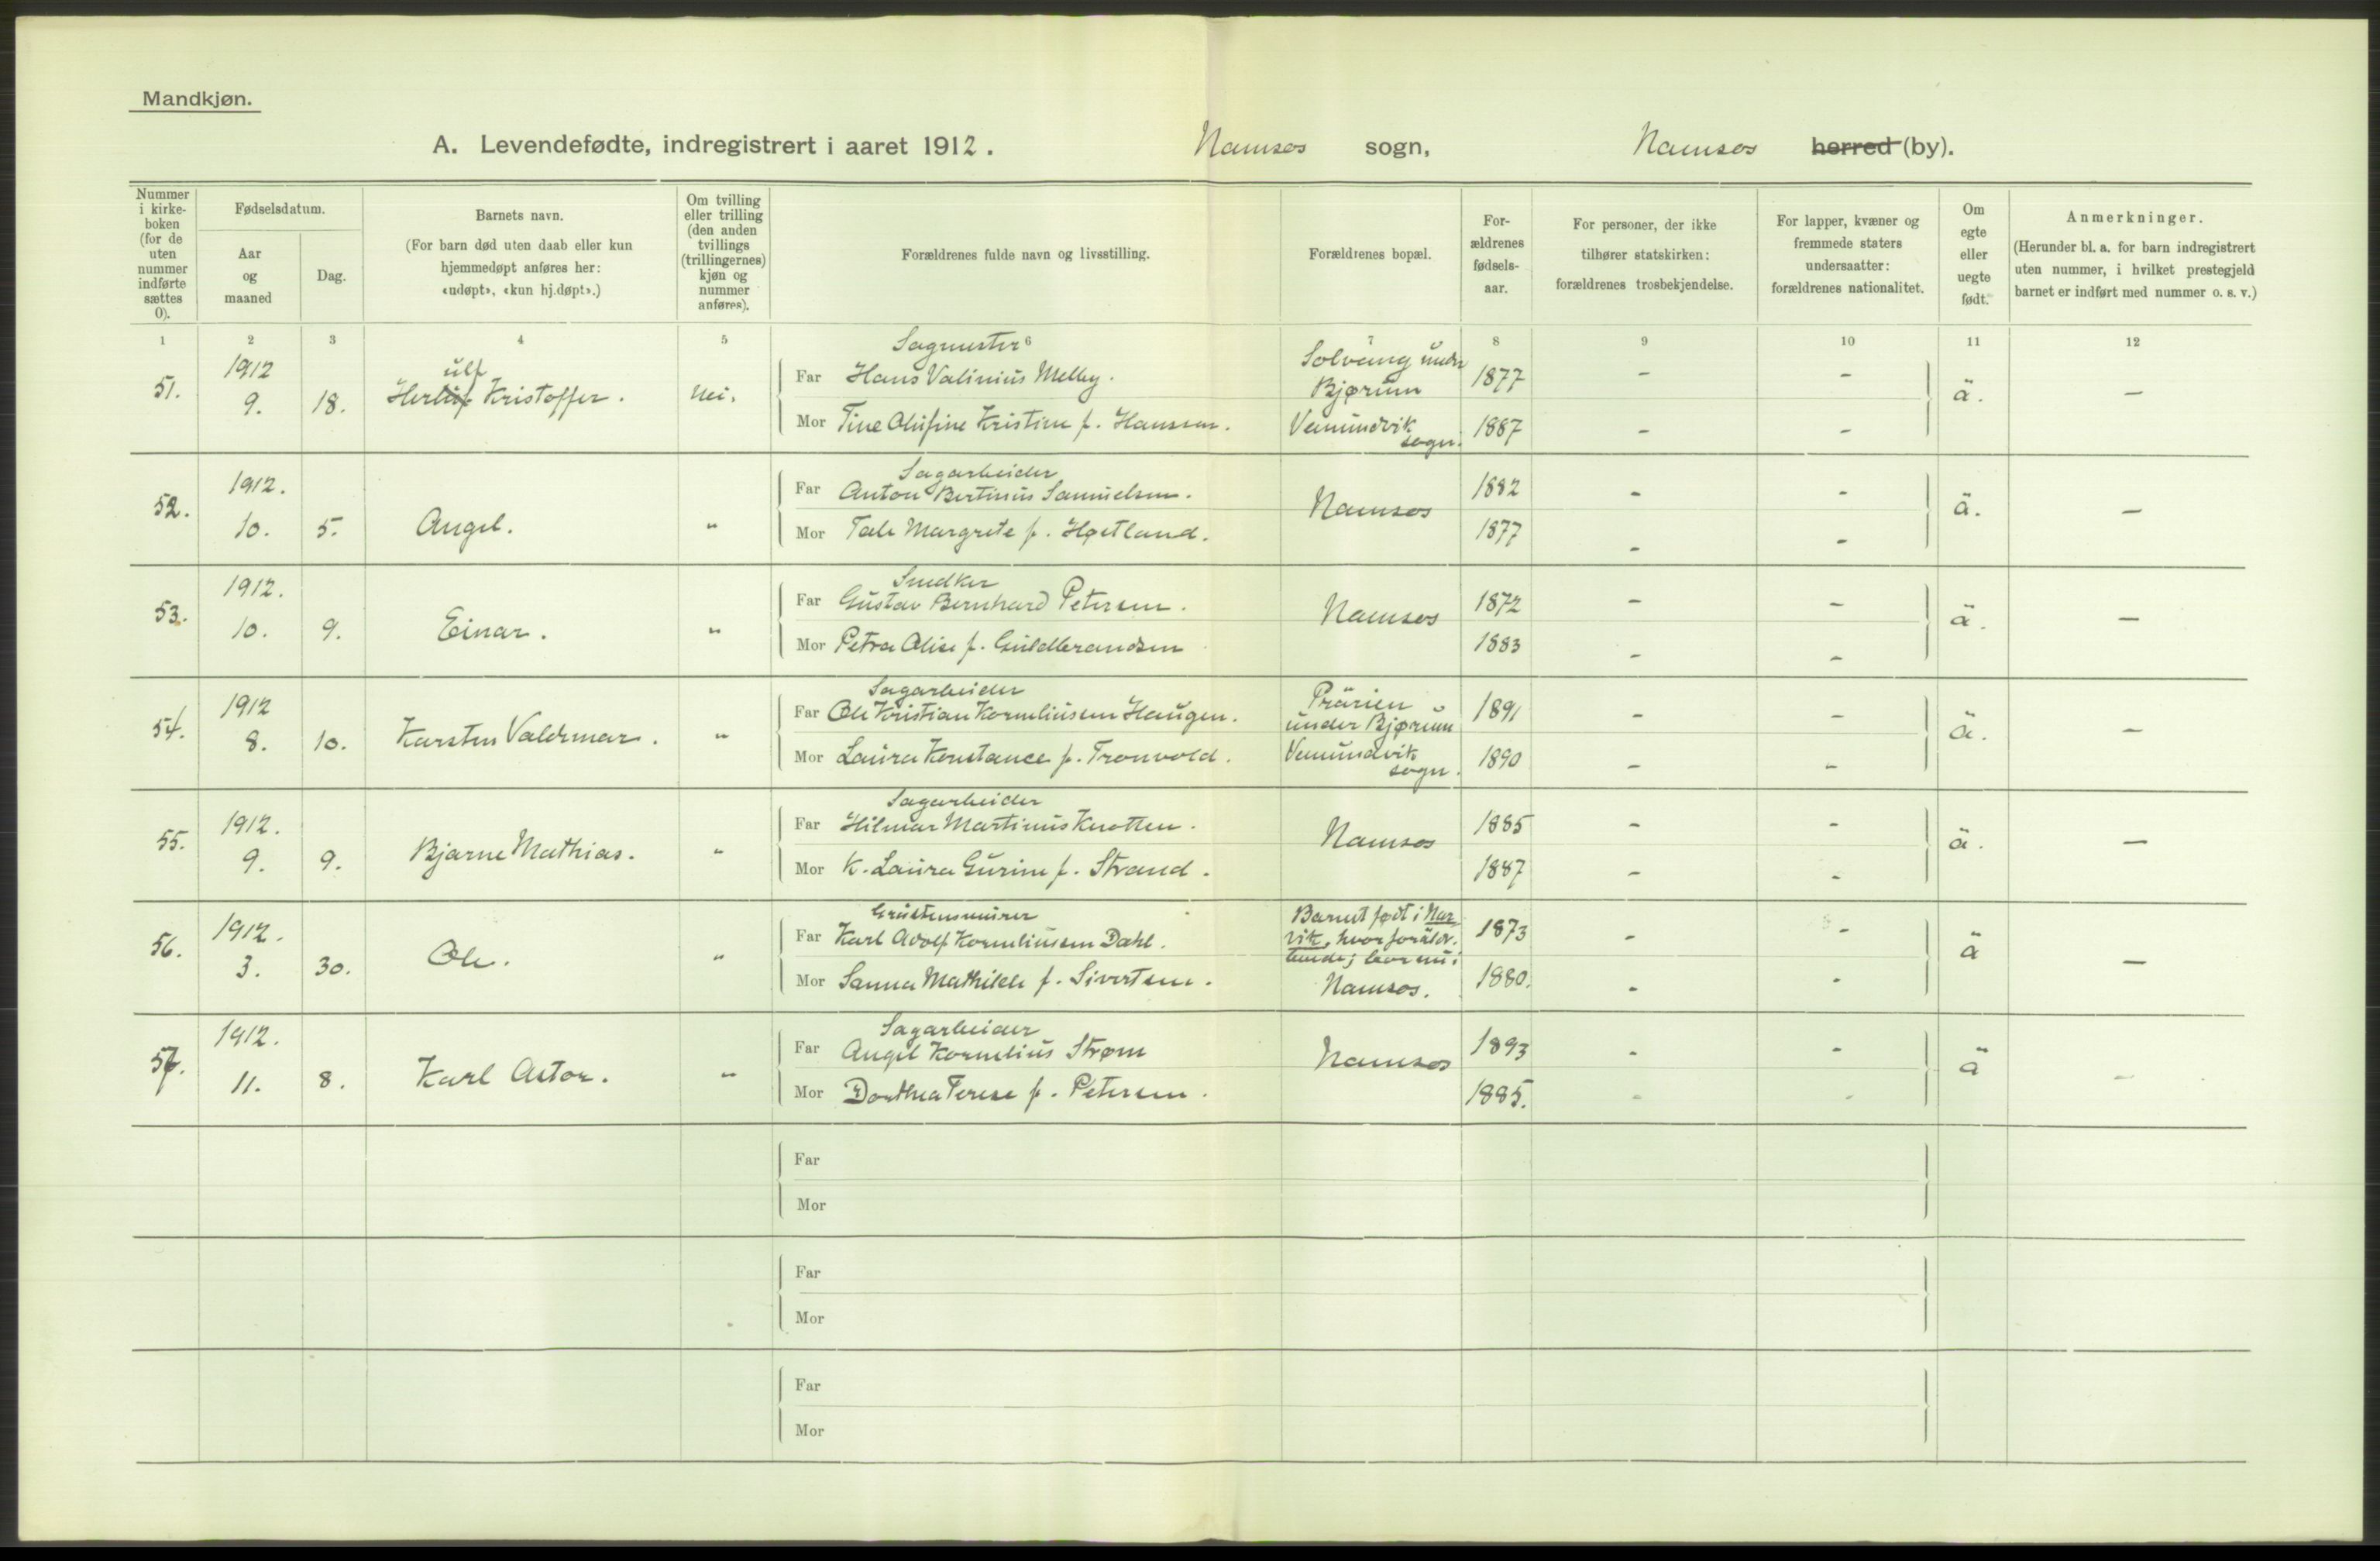 Mandkjøn.
A. Levendefødte, indregistrert i aaret 1912. Namsos sogn, Namsos herred (by).
Nummer i kirkeboken (for de uten nummer indførte sættes 0).
Fødselsdatum.
Aar og maaned
Dag.
Barnets navn.
(For barn død uten daab eller kun hjemmedøpt anføres her: «udøpt», «kun hj.døpt».)
Om tvilling eller trilling (den anden tvillings (trillingernes) kjøn og nummer anføres).
Forældrenes fulde navn og livsstilling.
Forældrenes bopæl.
Forældrenes fødselsaar.
For personer, der ikke tilhører statskirken: forældrenes trosbekjendelse.
For lapper, kvæner og fremmede staters undersaatter: forældrenes nationalitet.
Om egte eller uegte født.
Anmerkninger.
(Herunder bl. a. for barn indregistrert uten nummer, i hvilket prestegjeld barnet er indført med nummer o. s. v.)
1 2 3 4 5 6 7 8 9 10 11 12
51. 1912 9. 18. Herlulf Kristoffer. Nei.
Sagmester
Far Hans Valinius Melby. Solvang under Bjørum 1877 - - ä. —
Mor Tine Olufine Kristine f. Hanssen. Vemundvik sogn. 1887 - -
52. 1912. 10. 5. Angel. "
Sagarbeider
Far Anton Bertinus Samuelsen. Namsos 1882 - - ä. —
Mor Tale Margrete f. Høtland. 1877 - -
53. 1912. 10. 9. Einar. "
Snedker
Far Gustav Bernhard Petersen. Namsos 1872 - - ä. —
Mor Petra Olise f. Guldbrandsen 1883 - -
54. 1912 8. 10. Karsten Valdemar. "
Sagarbeider
Far Ole Kristian Korneliussen Haugen. Prärien under Bjørum 1891 - - ä. —
Mor Laura Konstance f. Tronvold. Vemundvik sogn. 1890 - -
55. 1912. 9. 9. Bjarne Mathias. "
Sagarbeider
Far Hilmar Martinus Knotten. Namsos 1885 - - ä. —
Mor K. Laura Gurine f. Strand. 1887 - -
56. 1912. 3. 30. Ole. "
Gråstensmurer
Far Karl Adolf Korneliussen Dahl. Barnet født i Narvik, hvor foräldr. 1873 - - ä —
Mor Sanna Mathilde f. Sivertsen. bor nu i Namsos. 1880. - -
57. 1912. 11. 8. Karl Astor. "
Sagarbeider
Far Angel Kornelius Strøm Namsos 1893 - - ä —
Mor Dorthea Terese f. Petersen. 1885. - -
Far
Mor
Far
Mor
Far
Mor